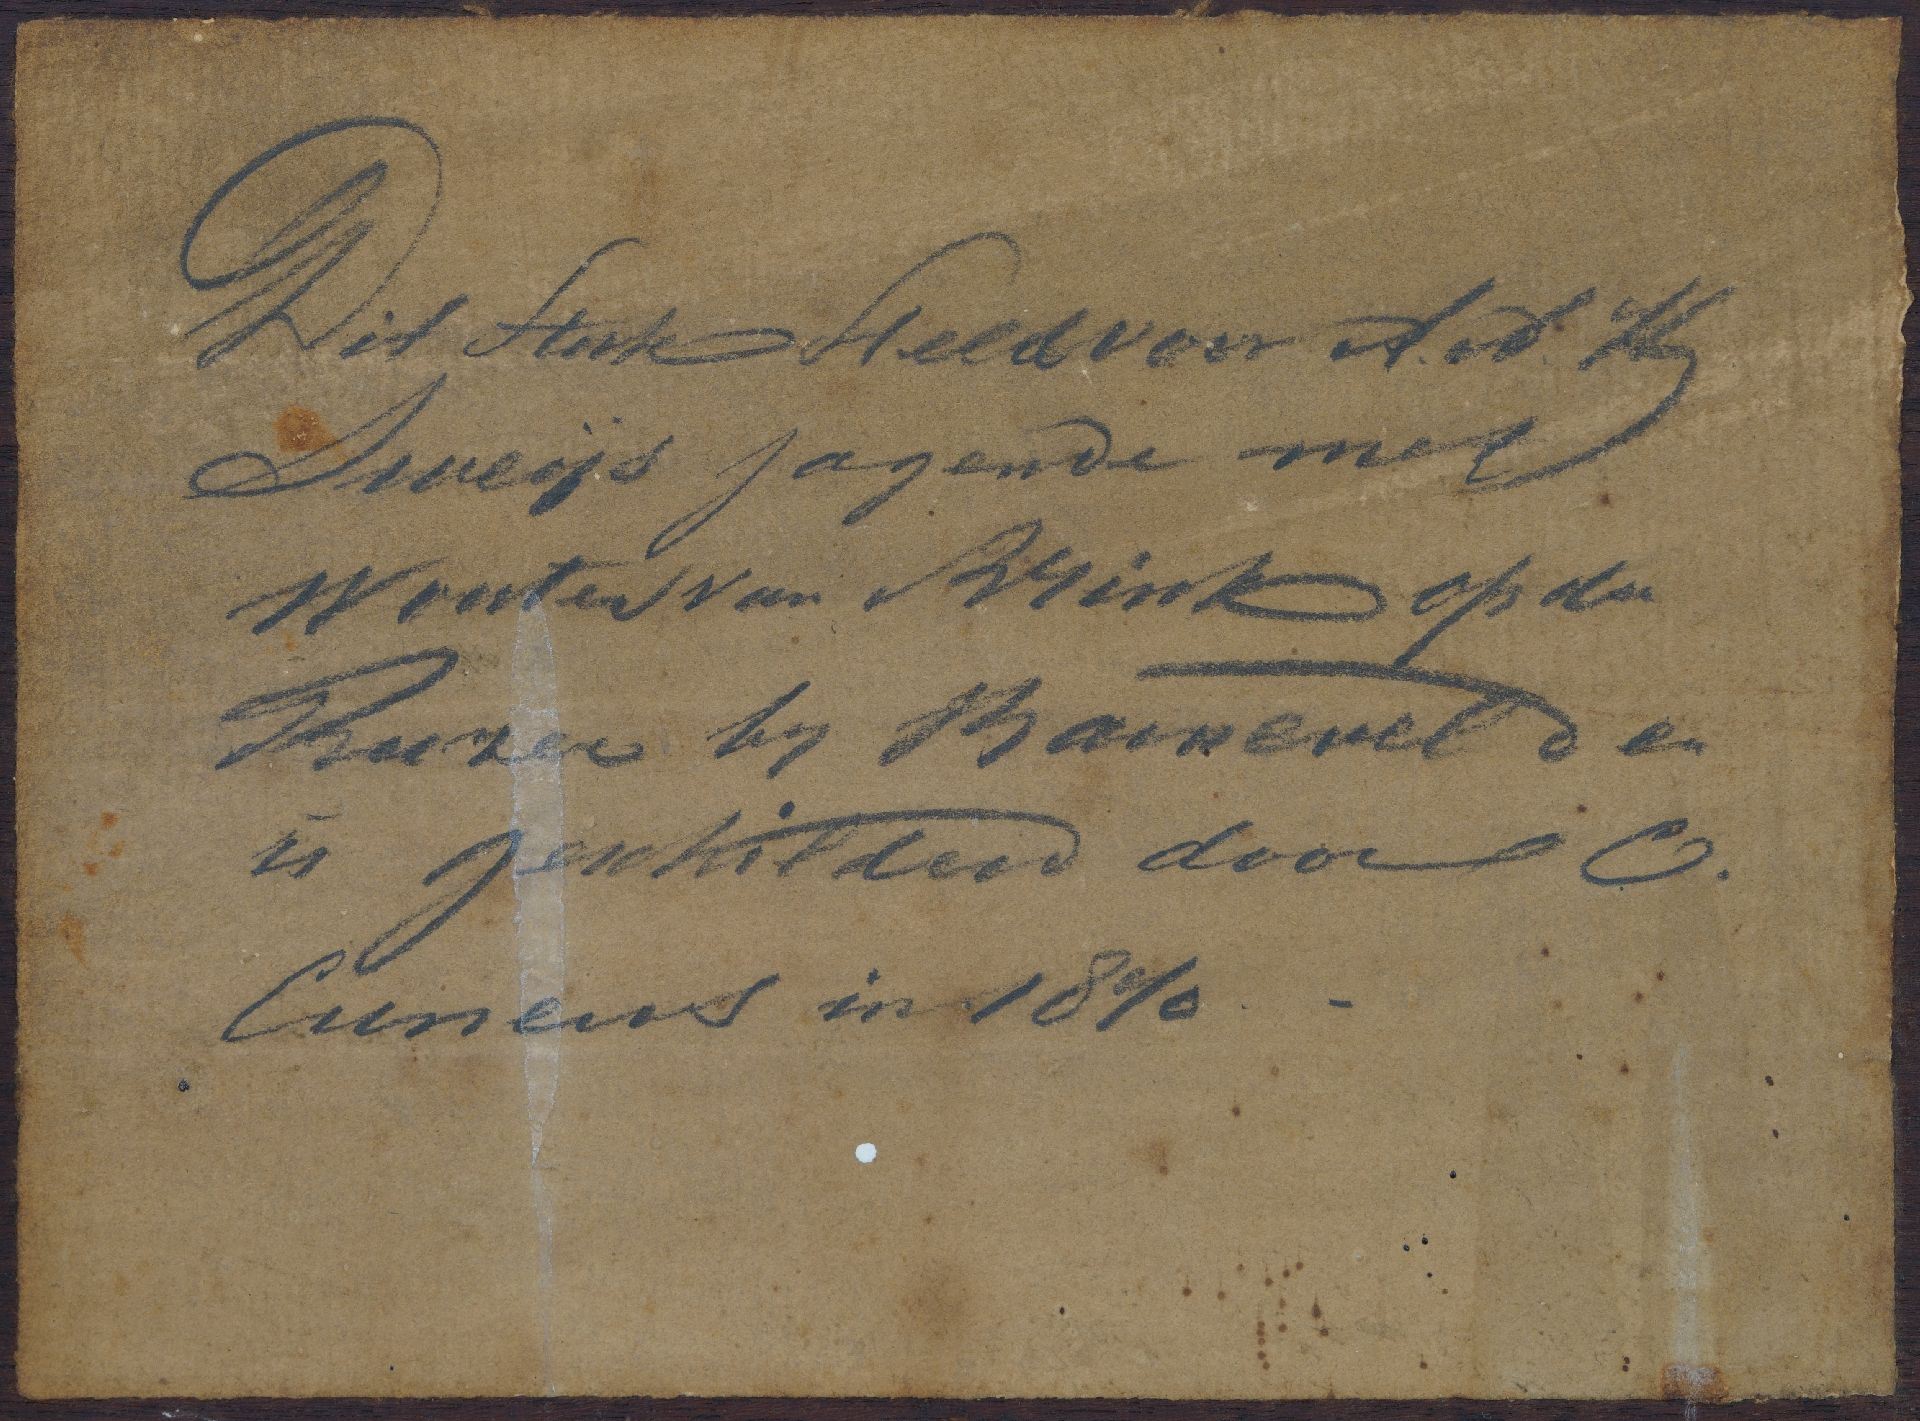 Dit Stuk Steld voor A. A. H
Sweijs jagende met
Wouter van Blink op de
by Barneveld en
is geschilderd door C.
Cunaeus in 1870. -